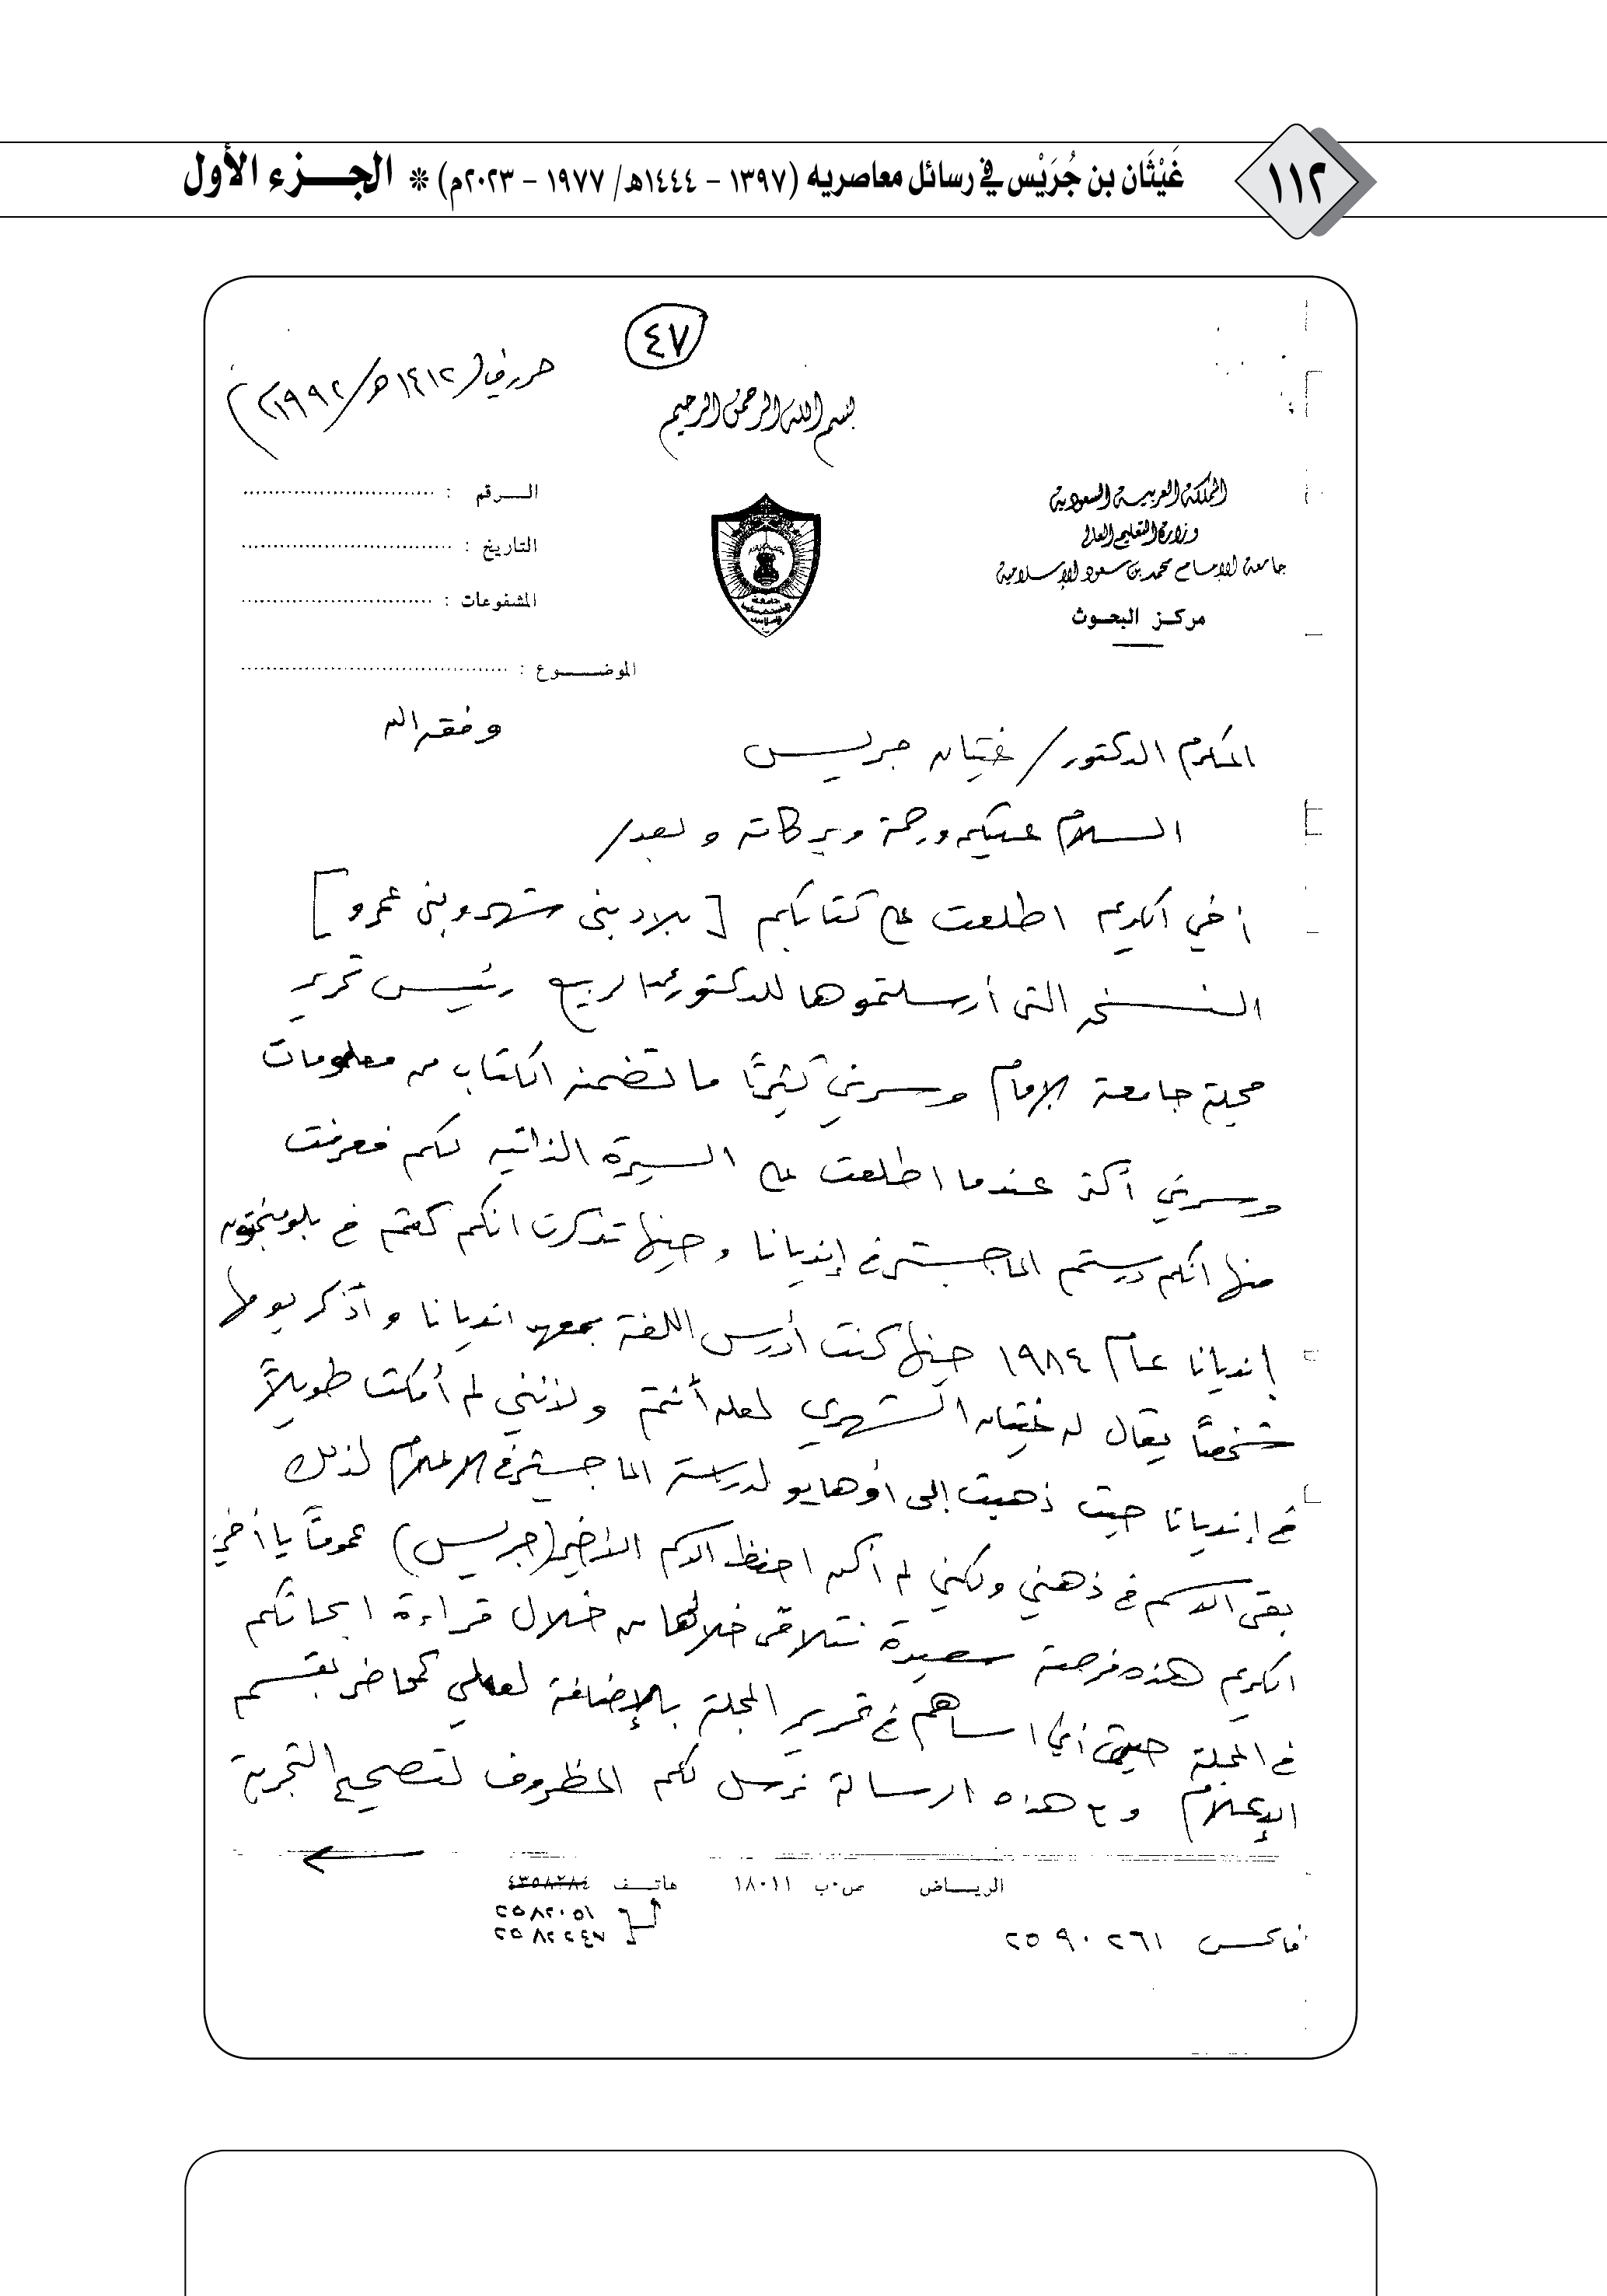 ١١٢
غَيْثَان بن جُرَيْس في رسائل معاصريه (١٣٩٧ - ١٤٤٤هـ/ ١٩٧٧ - ٢٠٢٣م) * الجـزء الأول
٤٧
حرر في ١٤١٢هـ/١٩٩٢م
بسم الله الرحمن الرحيم
المملكة العربية السعودية
وزارة التعليم العالي
جامعة الإمام محمد بن سعود الإسلامية
مركز البحوث
الرقم :
التاريخ :
المشفوعات :
الموضوع :
المكرم الدكتور / غيثان جريس وفقه الله
السلام عليكم ورحمة وبركاته وبعد /
أخي الكريم اطلعت على كتابكم [بلاد بني شهر وبني عمرو]
النسخة التي أرسلتموها للدكتور الربيع رئيس تحرير
مجلة جامعة الإمام وسرني كثيرًا ما تضمنه الكتاب من معلومات
وسرني أكثر عندما اطلعت على السيرة الذاتية لكم فعرفت
منها انكم درستم الماجستير في إنديانا وحينها تذكرت انكم كنتم في بلومنجتون
إنديانا عام ١٩٨٤ حينما كنت أدرس اللغة بمعهد انديانا وأذكر يومها
شخصًا يقال له غيثان الشهري لعله أنتم ولأنني لم أمكث طويلاً
في إنديانا حيث ذهبت إلى أوهايو لدراسة الماجستير في الاعلام لذلك
بقى الاسم في ذهني ولكني لم أكن احفظ الاسم الأخير (جريس) عمومًا يا أخي
الكريم هذه فرصة سعيدة نتلاقى خلالها من خلال قراءة ابحاثكم
في المجلة حيث أني اساهم في تحرير المجلة بالإضافة لعملي كمحاضر بقسم
الإعلام ومع هذه الرسالة نرسل لكم المظروف لتصحيح التجربة
الرياض ص.ب ١٨٠١١ هاتف ٤٣٥٨٢٨٤
٢٥٨٢٠٥١
٢٥٨٢٢٤٧
فاكس ٢٥٩٠٢٦١